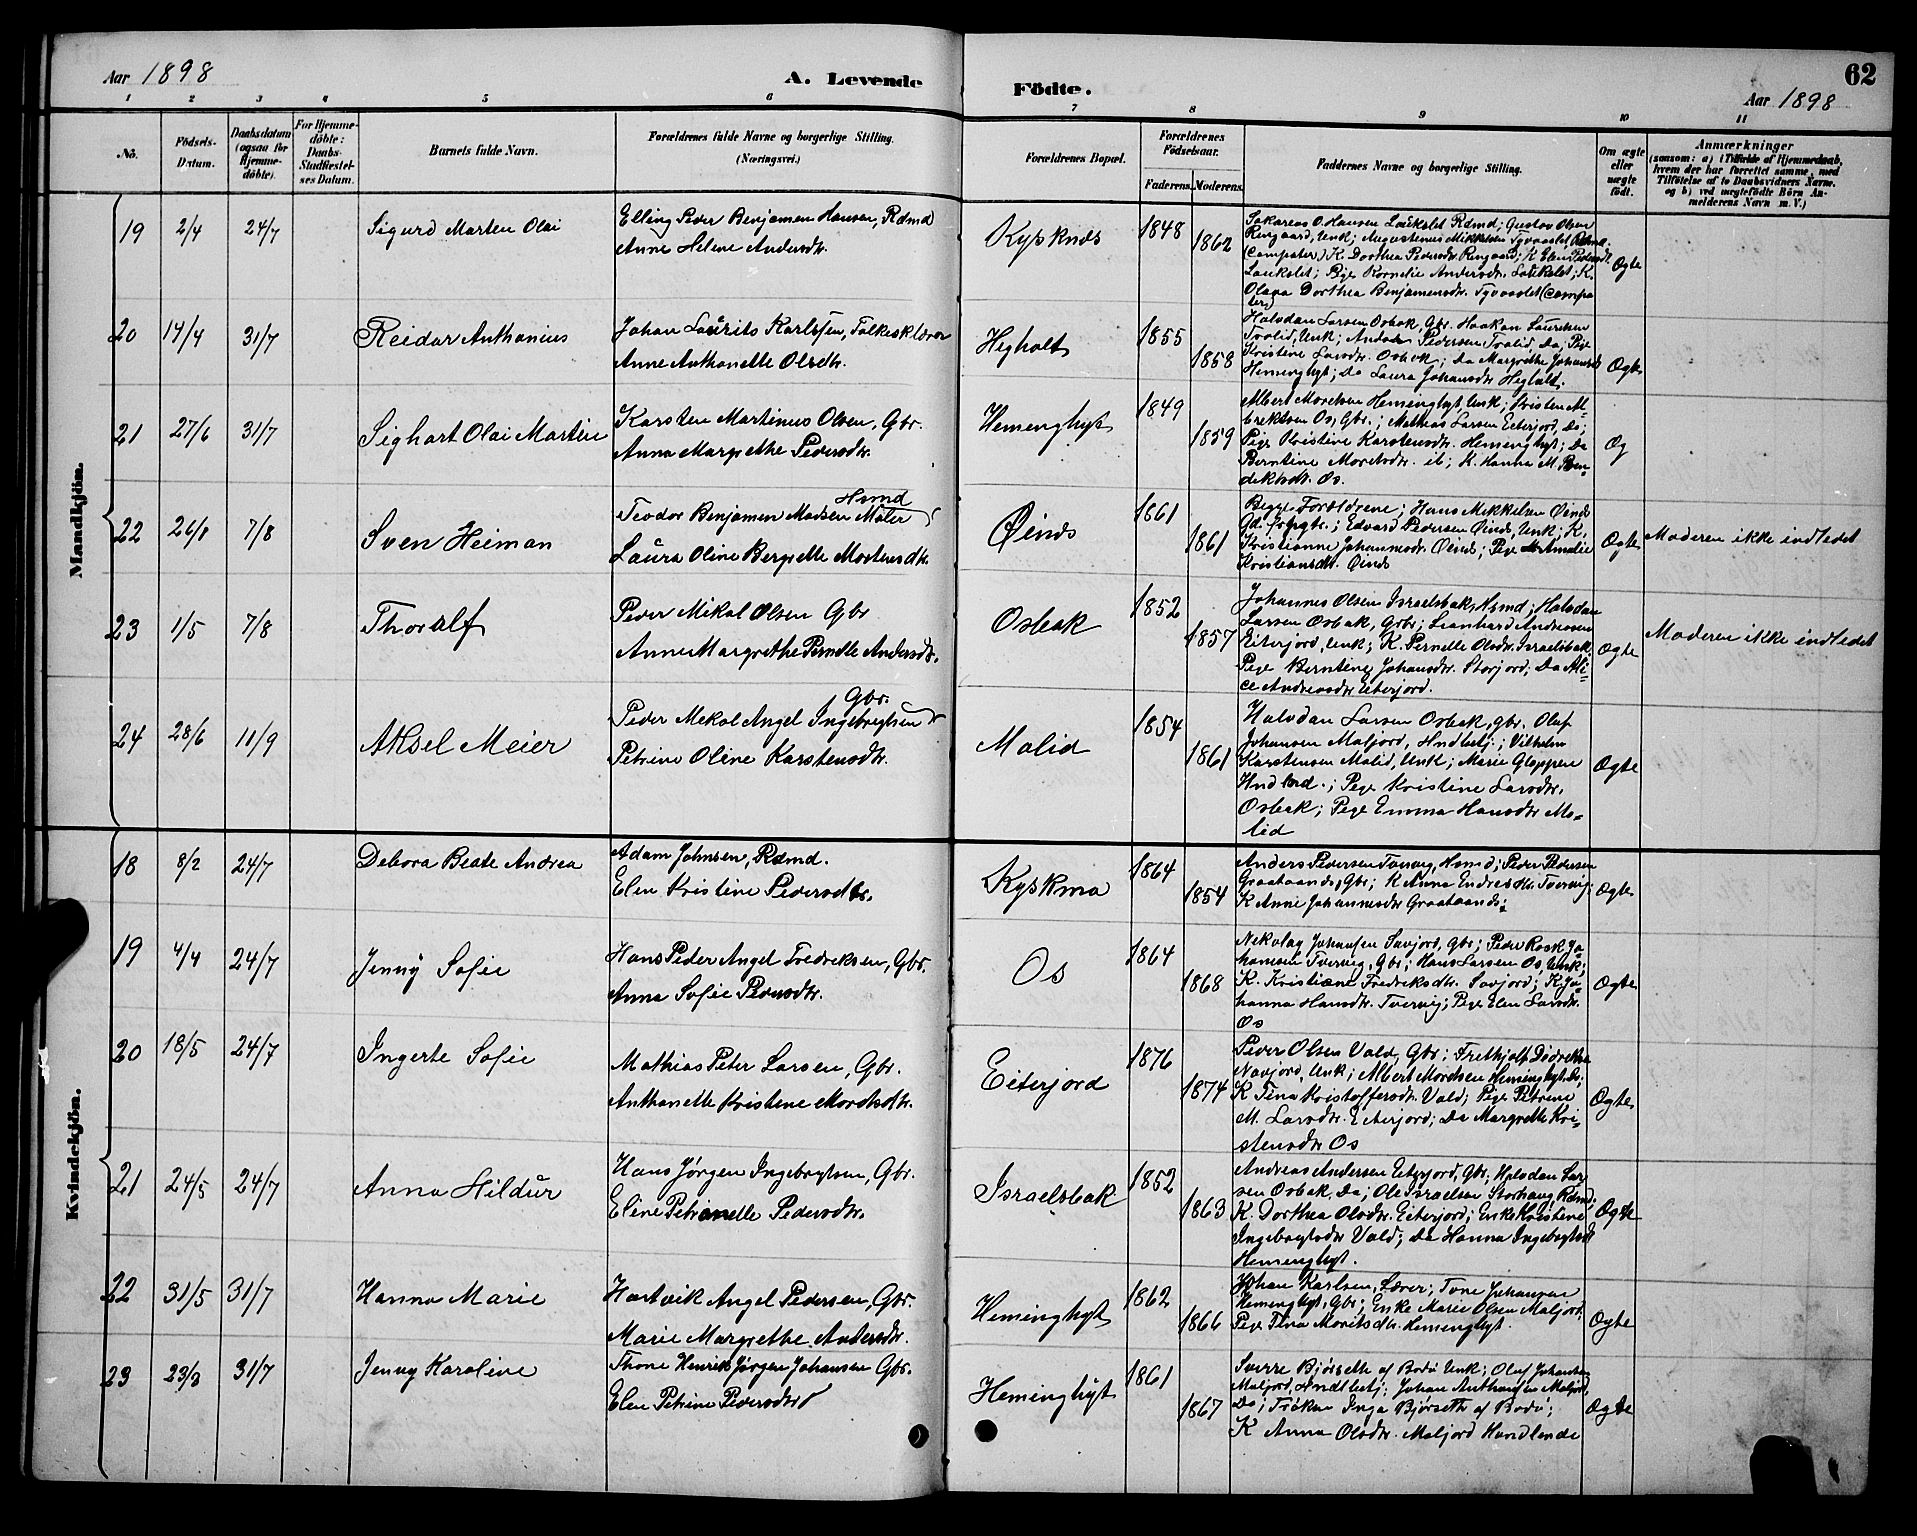 Aar 1898
A. Levende Födte.
62
Aar 1898
1 2 3 4 5 6 7 8 9 10 11
No.
Födsels-Datum.
Daabsdatum (ogsaa for Hjemme-döbte).
For Hjemme-döbte: Daabs-Stadfæstel-ses Datum.
Barnets fulde Navn.
Forældrenes fulde Navne og borgerlige Stilling. (Næringsvei.)
Forældrenes Bopæl.
Forældrenes Födselsaar.
Faderens. Moderens.
Faddernes Navne og borgerlige Stilling.
Om ægte eller uægte födt.
Anmærkninger
(saasom: a) i Tilfælde af Hjemmedaab, hvem der har forrettet samme, med Tilföielse af to Daabsvidners Navne. og b) ved uægtefödte Börn An-melderens Navn m. V.)
Mandkjön.
19 2/4 24/7 Sigurd Marten Olai
Elling Peder Benjamen Hansen, Rdmd
Anne Helene Andersdtr.
Kysknds 1848 1862
Sakarias O. Hansen Laukslet Rdmd; Gustav Olsen
Rengaard, Unk; Augustenus Mikkelsen Tyvaaslet Rdmd.
(Campater) K. Dorthea Pedersdtr Rengaard; K Elen Pedersdtr.
Laukslet; Pige Kornelie Andersdtr. Laukslet; K.
Olava Dorthea Benjamensdtr. Tyvaaslet (Campa
ter)
Ægte
20 14/4 31/7 Reidar Anthonius
Johan Laurits Karlssen, Folkesklærer
Anne Anthonelle Olsdtr.
Hegholt 1855 1858
Halvdan Larsen Osbak, Gbr. Haakon Lauritsen
Tralid, Unk; Anders Pedersen Tralid, Do; Pige
Kristine Larsdtr. Osbak; Do Margrethe Johansdtr
Heminghyt; Do Laura Johansdtr Hegholt.
Ægte
21 27/6 31/7 Sighart Olai Martin
Karsten Martinus Olsen, Gbr.
Anna Margrethe Pedersdtr.
Heminghyt 1849 1859
Albert Moretsen Heminghyt, Unk; Kristen Al-
brektsen Os, Gbr.; Mathias Larsen Eiterjord, Do;
Pige Kristine Karstensdtr. Heminghyt; Do
Berntine Moretsdtr. ib; K. Hanna M. Ben-
dektsdtr. Os.
Æg
22 26/8 7/8 Sven Heiman
Hsmd
Teodor Benjamen Madsen Maler
Laura Oline Bergelle Mortensdtr.
Øinds 1861 1861
Begge Forældrene; Hans Mekkelsen Øinds
Edvard Pedersen Øinds, Unk; K.
Kristianne Johannesdtr. Øinds; Pige Amalie
Kristiansdtr. Øinds
Ægte Moderen ikke indledet
23 1/5 7/8 Thoralf
Peder Mikal Olsen Gbr
Anne Margrethe Pernelle Andersdtr.
Osbak 1852 1857
Johannes Olsen Israelsbak Hsmd; Halvdan
Larsen Osbak, Gbr; Leonhard Andreasen
Eiterjord, Unk; K. Pernelle Olsdtr. Israelsbak;
Pige Berntine Johansdtr. Storjord; Do Ali-
ce Andreasdtr Eiterjord.
Ægte Moderen ikke indledet
24 28/6 11/9 Aksel Meier
Gbr.
Peder Mekal Angel Ingebregtsen
Petrine Oline Karstensdtr.
Molid 1854 1861
Halvdan Larsen Osbak, Gbr. Oluf
Johansen Maljord, Hndlbetj; Vilhelm
Karstensen Molid, Unk; Marie Gloppen
Hndlerd.; Pige Kristine Larsdtr.
Osbak; Pige Emma Hansdtr Mo-
lid
Ægte
Kvindekjön.
18 8/2 24/7 Debora Beate Andrea
Adam Johnsen, Rdmd.
Elen Kristine Pedersdtr.
Kyskma 1864 1854
Anders Pedersen Tvervig, Hsmd; Peder Pedersen
Graataands, Gbr; K Anna Endresdtr. Tvervig;
K Anne Johannesdtr Graataands;
Ægte
19 4/4 24/7 Jenny Sofie
Hans Peder Angel Fredriksen, Gbr.
Anna Sofie Pedersdtr.
Os 1864 1868
Nekolay Johansen Savjord, Gbr; Peder Rask Jo-
hansen Tvervig, Gbr; Hans Larsen Os, Unk;
K. Kristiane Fredriksdtr. Savjord; K Jo-
hanna Hansdtr. Tvervig; Pige Elen Larsdtr.
Os
Ægte
20 18/5 24/7 Ingerte Sofie
Mathias Peter Larsen, Gbr.
Anthonette Kristine Moretsdtr.
Eiterjord 1876 1874
Peder Olsen Vald, Gbr; Frethjolf Didreksen
Navjord, Unk; Albert Moretsen Heminghyt, Do;
K Tina Kristoffersdtr. Vald; Pige Petrine
M. Larsdtr. Eiterjord; Do Margrethe Kri-
stensdtr Os
Ægte
21 24/5 24/7 Anna Hildur
Hans Jørgen Ingebregtsen, Gbr.
Eline Petronelle Pedersdtr.
Israelsbak 1852 1863
Andreas Andersen Eiterjord, Gbr; Halvdan Lar-
sen Osbak, Do; Ole Israelsen Storhaug Rdmd;
K. Dorthea Olsdtr. Eiterjord; Enke Kristine
Ingebregtsdtr Vald; Do Hanna Ingebregtsdtr
Heminghyt.
Ægte
22 31/5 31/7 Hanna Marie
Hartvik Angel Pedersen, Gbr.
Marie Margrethe Andersdtr.
Heminghyt 1862 1866
Johan Karlsen, Lærer; Tone Johansen
Heminghyt, Gbr; Enke Marie Olsen Maljord;
Pige Tina Moritsdtr. Heminghyt.
Ægte
23 23/3 31/7 Jenny Karoline
Thone Henrik Jørgen Johansen Gbr.
Elen Petrine Pedersdtr
Heminghyt 1861 1867
Sverre Bjørseth af Bodø Unk; Oluf Johansen
Maljord, Hndlbetj; Johan Anthonsen Maljord,
Do; Frøken Inga Bjørseth af Bodø;
K Anna Olsdtr. Maljord Handlende
Ægte